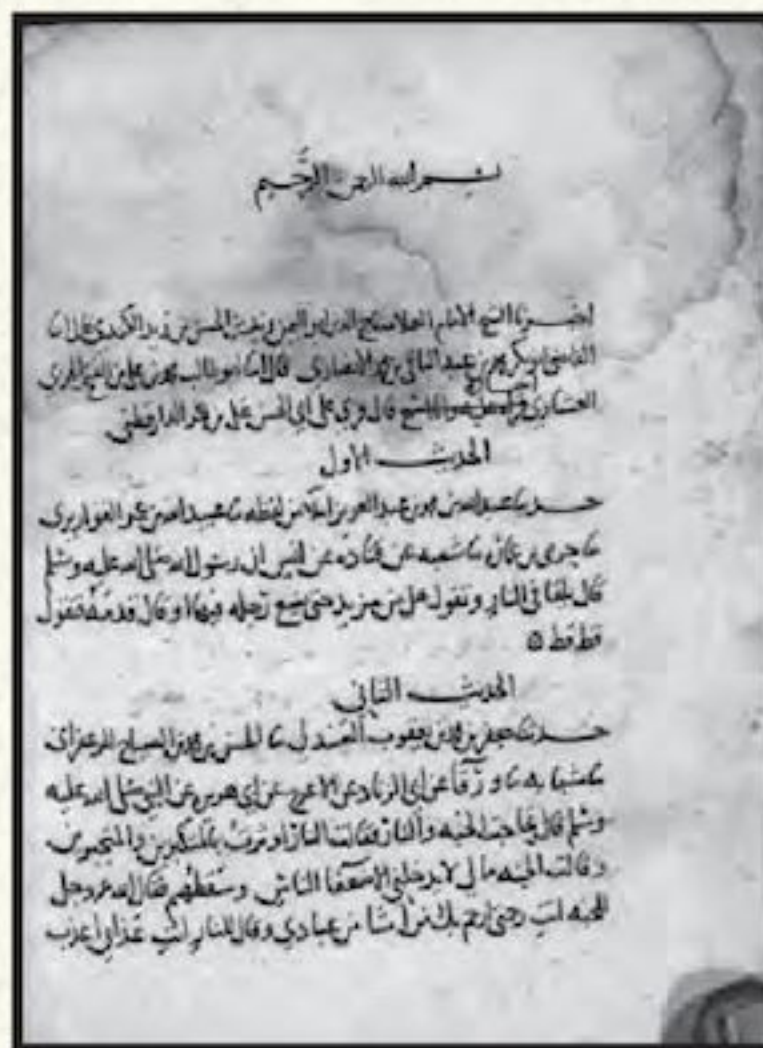 بسم الله الرحمن الرحيم
اخبرنا الشيخ الامام العلامه تاج الدين ابو اليمن زيد بن الحسن بن زيد الكندي قال انا
القاضي ابو بكر محمد بن عبد الباقي بن محمد الانصاري قال انا ابو طالب محمد بن علي بن الفتح الحربي
العشاري قراه عليه وانا اسمع قال قري على ابي الحسن علي بن عمر الدارقطني
الحديث الاول
حدثنا عبد الله بن محمد بن عبد العزيز املا من لفظه ثنا عبيد الله بن عمر القواريري
ثنا حرمي بن عماره ثنا شعبه عن قتاده عن انس ان رسول الله صلى الله عليه وسلم
قال يلقا في النار وتقول هل من مزيد حتى يضع رجله فيها او قال قدمه فتقول
قط قط ه
الحديث الثاني
حدثنا جعفر بن محمد بن يعقوب الصندلي ثنا الحسن بن محمد بن الصباح الزعفراني
ثنا شبابه ثنا ورقا عن ابي الزناد عن الاعرج عن ابي هريره عن النبي صلى الله عليه
وسلم قال تحاجت الجنه والنار فقالت النار اوثرت بالمتكبرين والمتجبرين
وقالت الجنه مالي لا يدخلني الا ضعفا الناس وسقطهم فقال الله عز وجل
للجنه انت رحمتي ارحم بك من اشا من عبادي وقال للنار انت عذابي اعذب